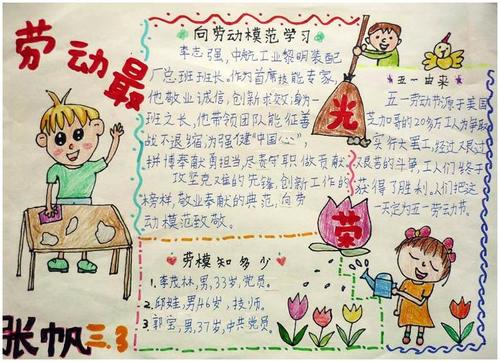 劳动最
光
荣
向劳动模范学习
李志强，中航工业黎明装配
厂总班班长。作为首席技能专家，
他敬业诚信，创新求效；身为一
班之长，他带领团队能征善
战不退缩，为强健“中国心”，
拼博奉献勇担当，尽责守职做贡献
攻坚克难的先锋，创新工作的
榜样，敬业奉献的典范，向劳
动模范致敬。
五一由来
五一劳动节源于美国
芝加哥的20多万工人为争取
实行大罢工，经过艰
艰苦的斗争，工人们终于
获得了胜利。人们把这
一天定为五一劳动节。
劳模知多少
1.李茂林，男，33岁，党员。
2.邱娃，男46岁，技师。
3.郭宝，男，37岁，中共党员。
张帆 三.3